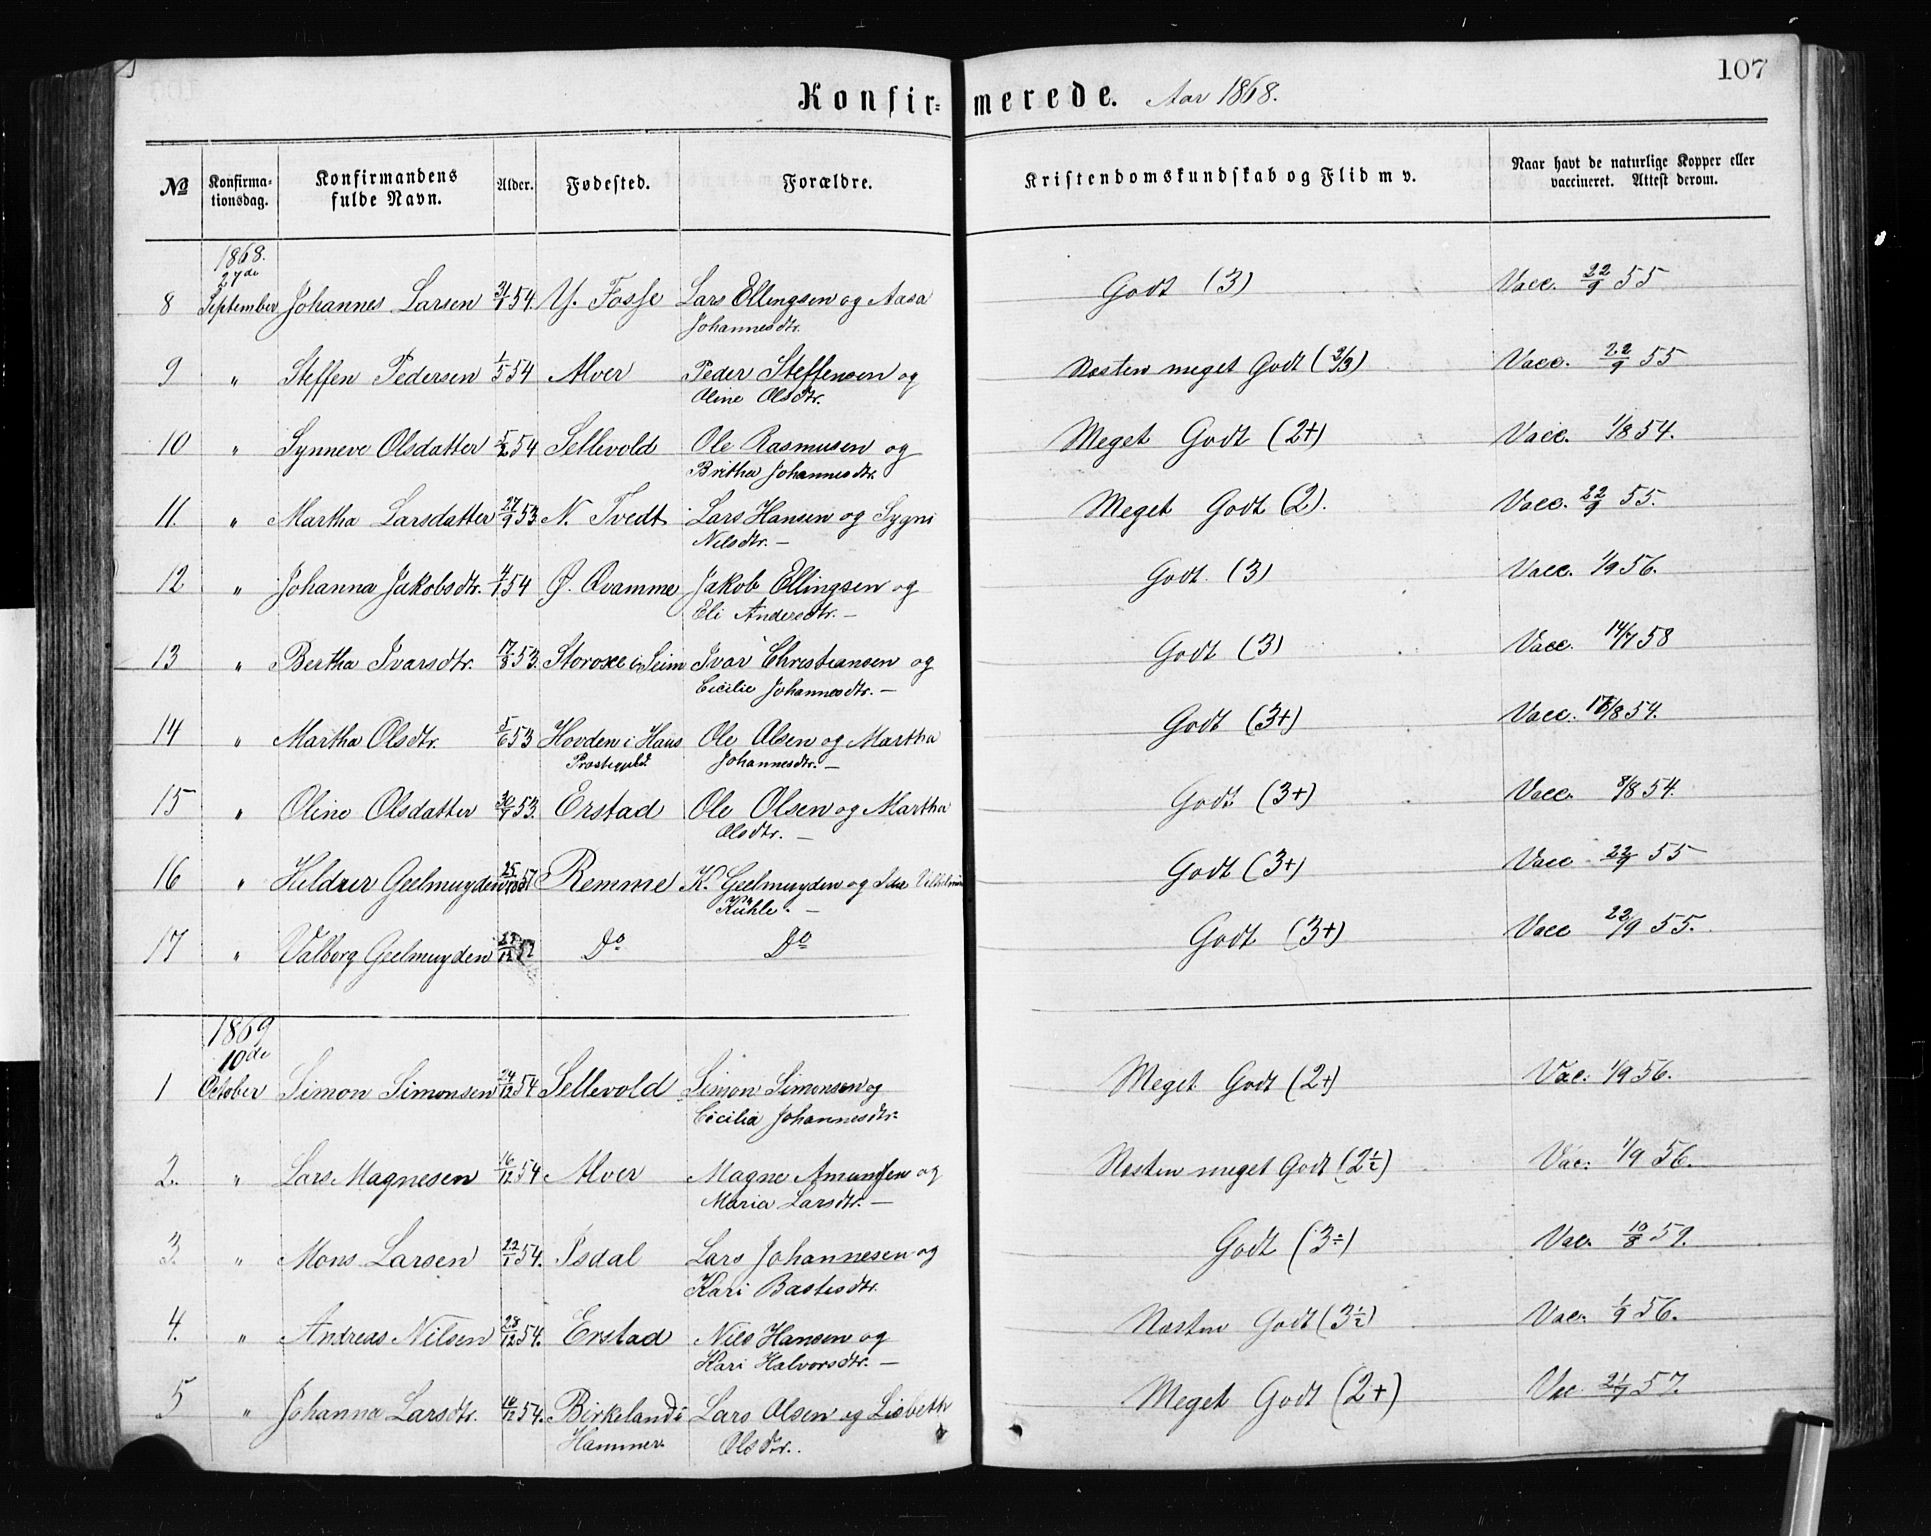 107
Konfir= merede. Aar 1868.
№ Konfirma= tionsdag. Konfirmandens fulde Navn. Alder. Fødested. Forældre. Kristendomskundskab og Flid m v. Naar havt de naturlige Kopper eller vaccineret. Attest derom.
1868.
27de
8 September Johannes Larsen 54. Y. Fosse Lars Ellingsen og Aasa Godt (3) Vacc. 22/9 55
Johannesdtr.
9 " Steffen Pedersen 1/5 54 Alver Peder Steffensen og Næsten meget Godt (2/3) Vacc. 22/9 55
Oline Olsdtr.
10 " Synneve Olsdatter 54 Sellevold Ole Rasmusen og Meget Godt (2+) Vacc. 1/8 54.
Britha Johannesdtr.
11. " Martha Larsdatter 27/9 53. N. Tvedt Lars Hansen og Sygni Meget Godt (2). Vacc. 22/9 55.
Nilsdtr. —
12 " Johanna Jakobsdtr. 4/1 54 Ø. Qvamme Jakob Ellingsen og Godt. (3) Vacc. 1/9 56.
Eli Andersdtr. —
13 " Bertha Ivarsdtr. 17/8 53. i Seim Ivar Christiansen og Godt (3) Vacc. 14/7 58
Cicilie Johannesdtr. —
14 " Martha Olsdtr. 5/6 53 Hovden i Haus Ole Olsen og Martha Godt (3+) Vacc. /8 54.
Præstegjeld. Johannesdtr. —
15 " Oline Olsdatter 30/9 53. Erstad Ole Olsen og Martha Godt (3+) Vacc. 8/8 54.
Olsdtr. —
16 " Geelmuyden 25/10 51 Remme K. Geelmuyden og Ida Vilhelmine Godt (3+) Vacc. 22/9 55
Kühle. —
17 " Valborg Geelmuyden /12 52 Do Do Godt (3+) Vacc 22/9 55.
1869
10de
1 October Simon Simonsen 24/12 54 Sellevold Simon Simonsen og Meget Godt (2+) Vac: 1/9 56.
Cicilia Johannesdtr:
2. " Lars Magnesen 16/12 54 Alver Magne Amundsen og Næsten meget Godt (2½) Vac: 1/9 56.
Maria Larsdtr. —
3. " Mons Larsen 22/1 54. Isdal Lars Johannesen og Godt (3÷) Vac. 10/8 59.
Kari Bastesdtr.
4. " Andreas Nilsen 28/12 54. Erstad Nils Hansen og Næsten Godt (3½) Vac. 1/9 56.
Kari Halvorsdtr. —
5 " Johanna Larsdtr. 16/12 54. Birkeland i Lars Olsen og Lisbeth Meget Godt (2+) Vac. 21/9 57.
Hammer Olsdtr.